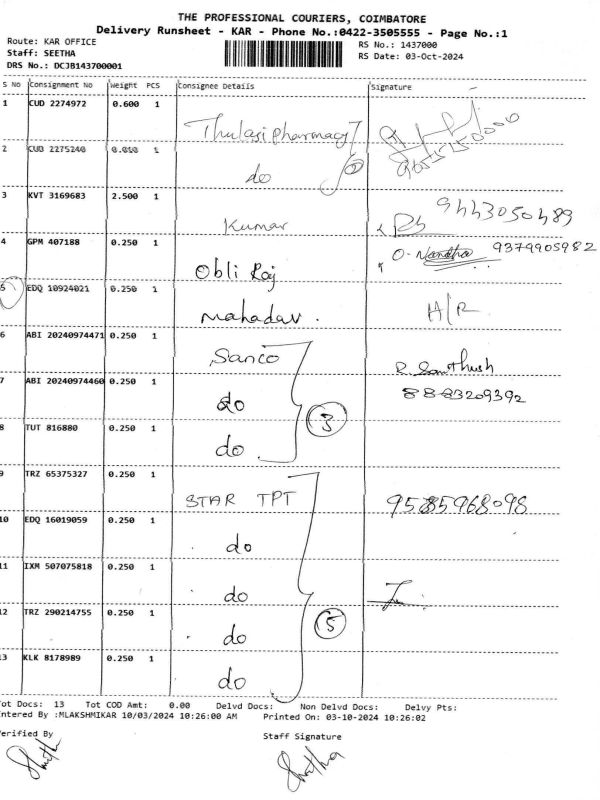 THE PROFESSIONAL COURIERS, COIMBATORE
Delivery Runsheet - KAR - Phone No.:0422-3505555 - Page No.:1
Route: KAR OFFICE
RS No.: 1437000
Staff: SEETHA
RS Date: 03-Oct-2024
DRS No.: DCJB143700001
S No Consignment No Weight PCS Consignee Details Signature
1 CUD 2274972 0.600 1
Thulasi pharmacy
2 CUD 2275240 0.010 1
do
3 KVT 3169683 2.500 1
Kumar 9443050489
4 GPM 407188 0.250 1
Obli Raj O. Nandha 9379905982
5 EDQ 10924021 0.250 1
Mahadav. H/R
6 ABI 20240974471 0.250 1
Sanco R Santhush
7 ABI 20240974460 0.250 1
do 3 8883209392
8 TUT 816880 0.250 1
do.
9 TRZ 65375327 0.250 1
STAR TPT 9585968098
10 EDQ 16019059 0.250 1
do
11 IXM 507075818 0.250 1
do
12 TRZ 290214755 0.250 1
do 5
13 KLK 8178989 0.250 1
do
Tot Docs: 13 Tot COD Amt: 0.00 Delvd Docs: Non Delvd Docs: Delvy Pts:
Entered By :MLAKSHMIKAR 10/03/2024 10:26:00 AM Printed On: 03-10-2024 10:26:02
Verified By Staff Signature